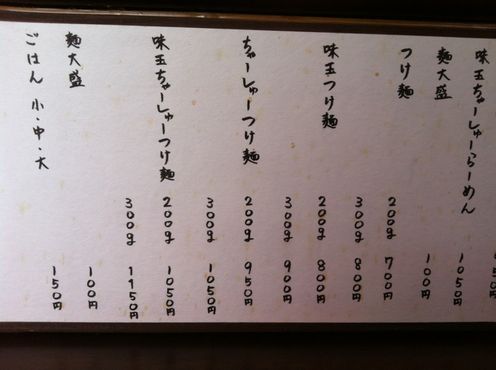 味玉ちゃーしゅーらーめん 1050円
麺大盛 100円
つけ麺 200g 700円
300g 800円
味玉つけ麺 200g 800円
300g 900円
ちゃーしゅーつけ麺 200g 950円
300g 1050円
味玉ちゃーしゅーつけ麺 200g 1050円
300g 1150円
麺大盛 100円
ごはん 小・中・大 150円